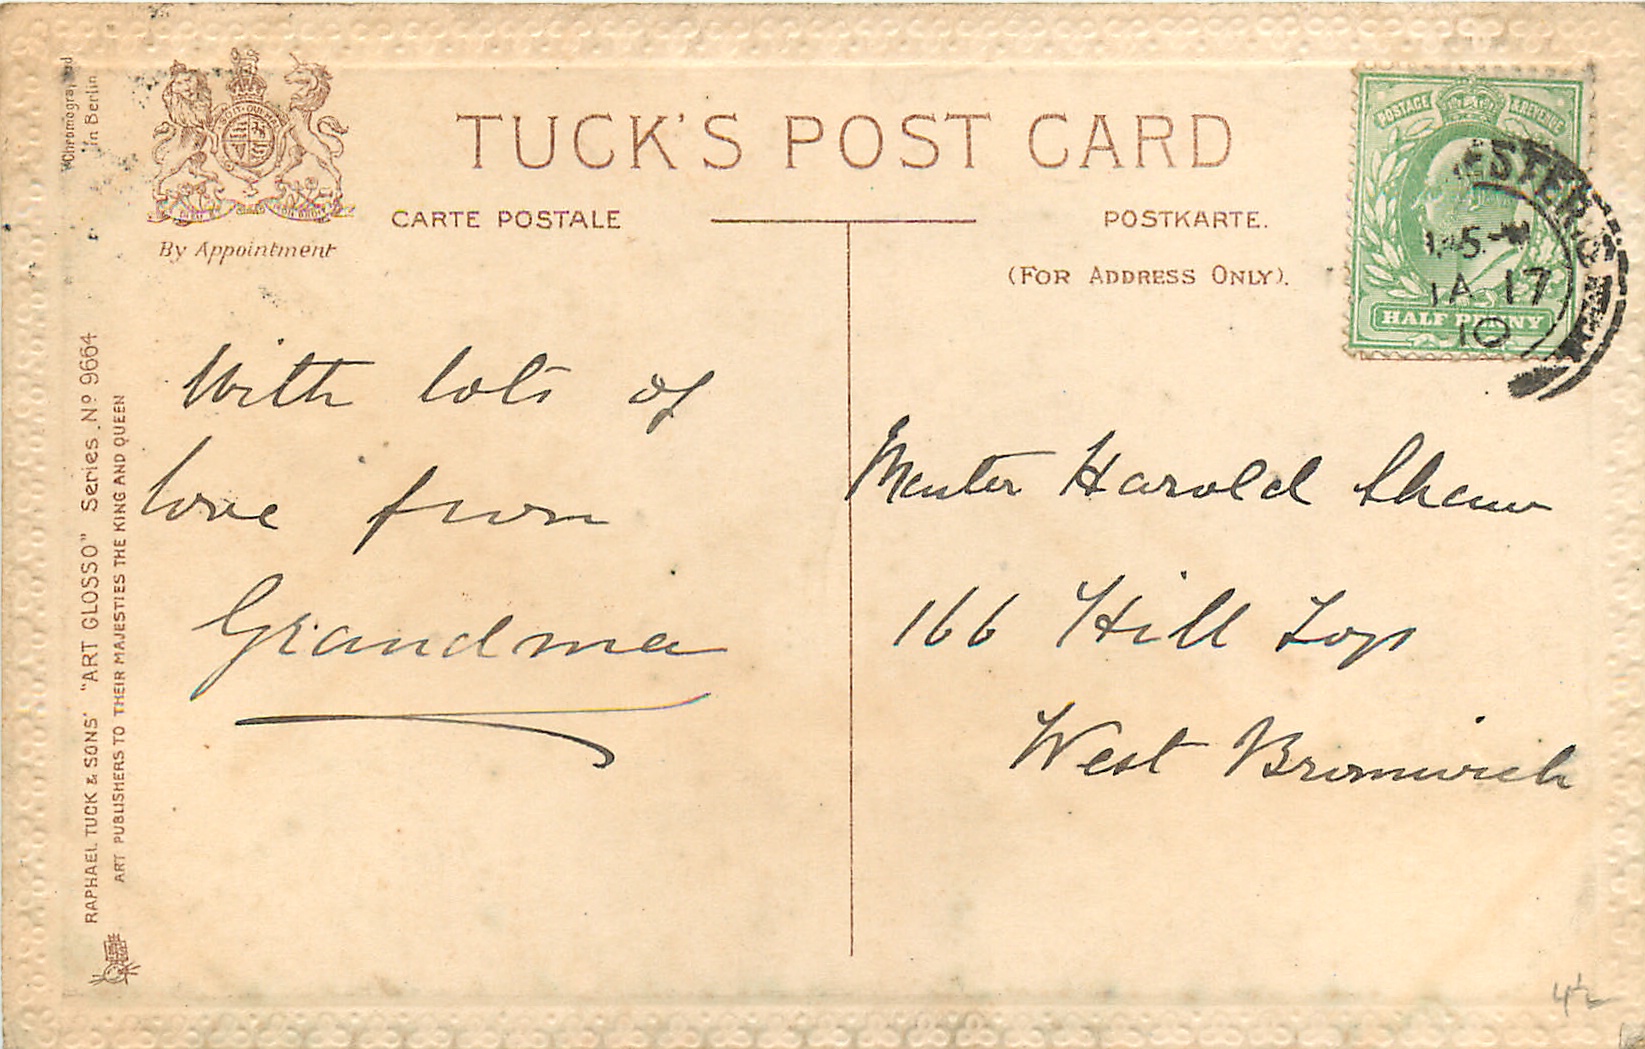 "Chromographed
in Berlin
By Appointment
TUCK'S POST CARD
CARTE POSTALE
POSTKARTE.
(FOR ADDRESS ONLY).
POSTAGE & REVENUE
HALF PENNY
JA 17
10
With lots of
love from
Grandma
Master Harold Shaw
166 Hill Top
West Bromwich
RAPHAEL TUCK & SONS' "ART GLOSSO" Series Nº 9664
ART PUBLISHERS TO THEIR MAJESTIES THE KING AND QUEEN